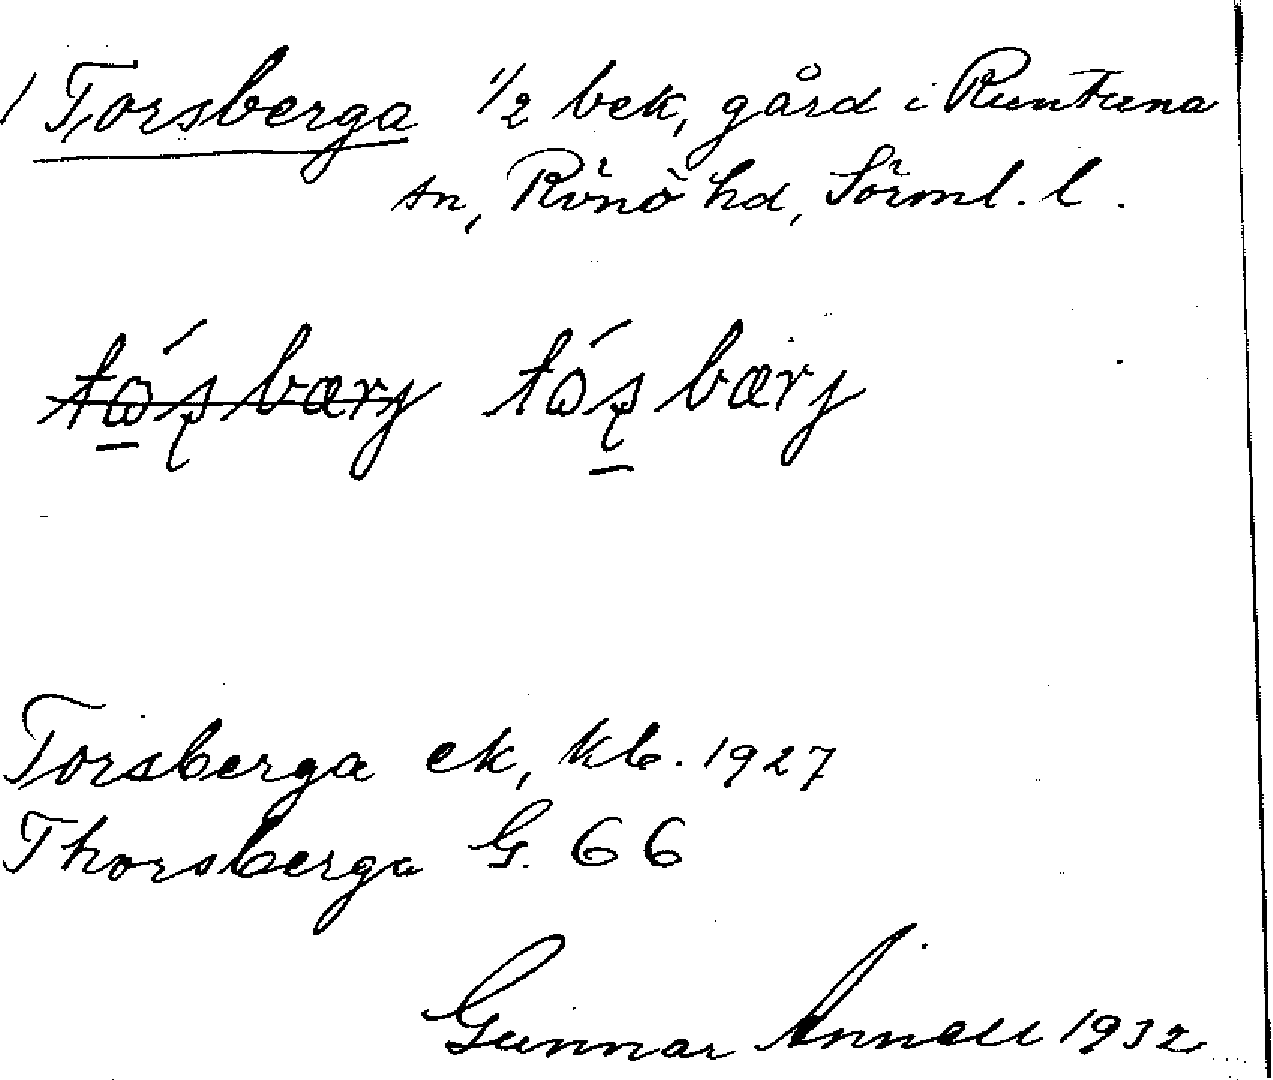 / Torsberga 1/2 bek, gård i Runtuna
sn, Rönö hd, Sörml. l.
tɷ́ʂbærj
Torsberga ek, kb. 1927
Thorsberga G. 66
Gunnar Annell 1932